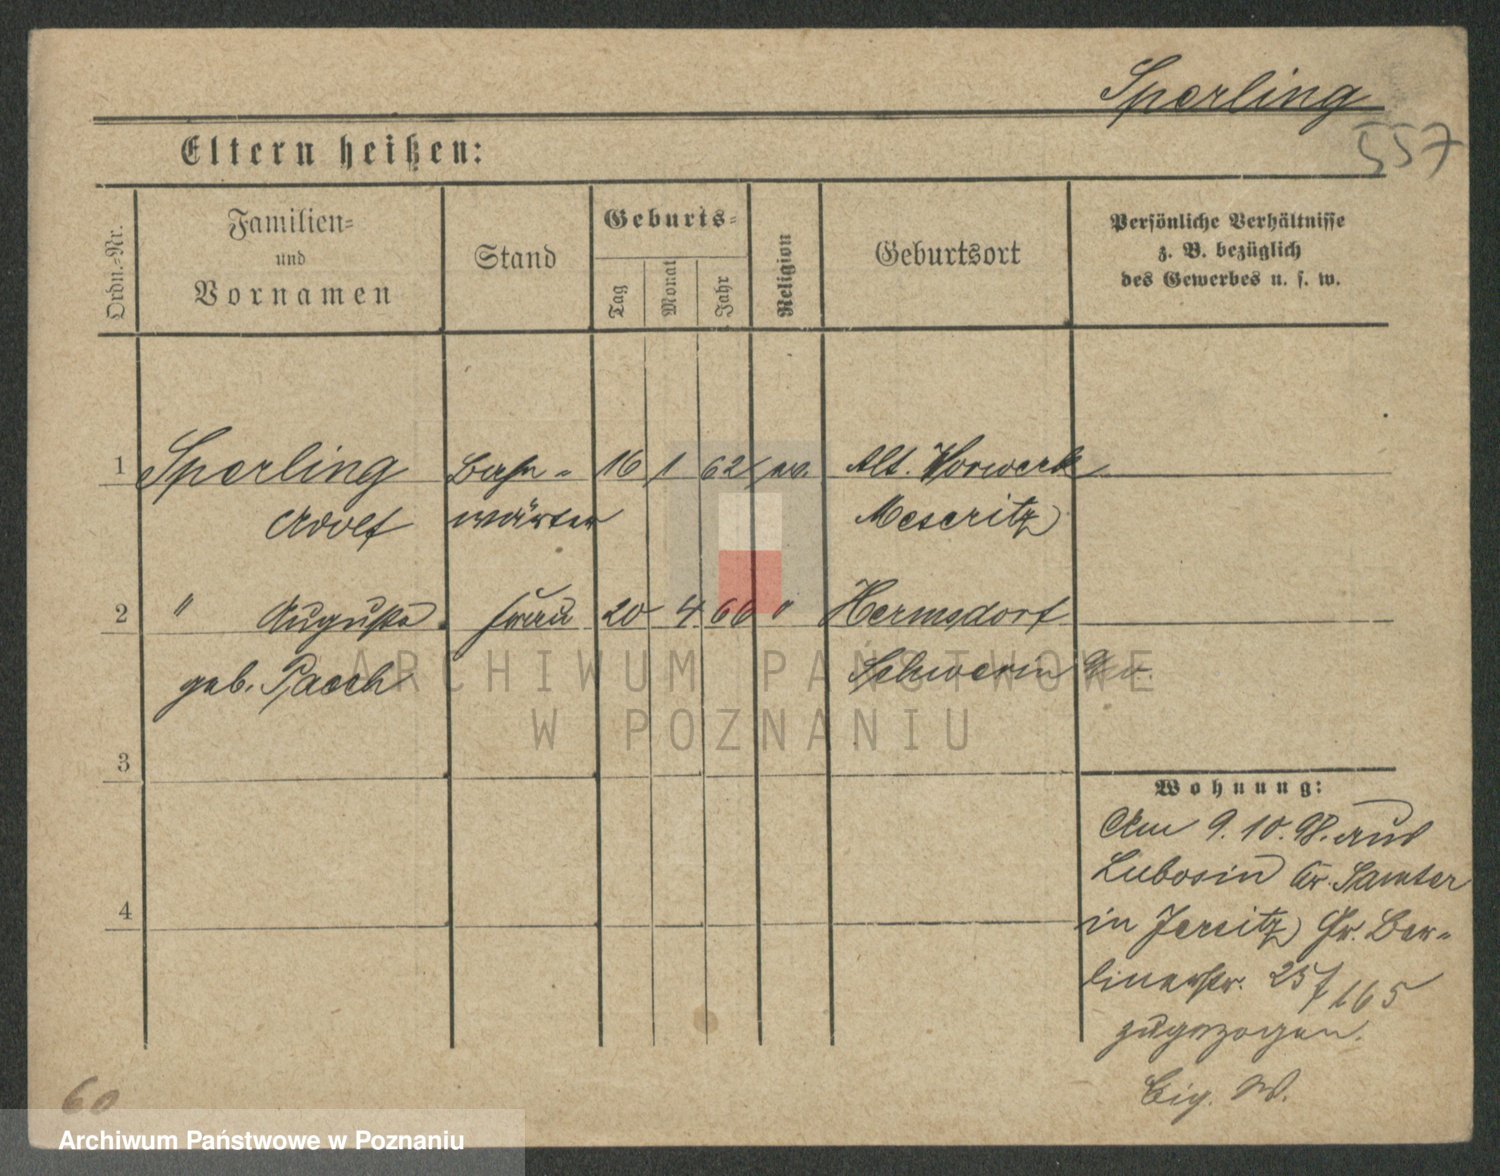 Sperling
557
Eltern heißen:
Ordn.-Nr.
Familien-
und
Vornamen
Stand
Geburts-
Tag
Monat
Jahr
Religion
Geburtsort
Persönliche Verhältnisse
z. B. bezüglich
des Gewerbes u. s. w.
1 Sperling Bahn- 16 1 62 ev. Alt. Vorwerk
Adolf wärter Meseritz
2 " Auguste Frau 20 4 66 " Hermsdorf
geb. Paech Schwerin
3
4
Wohnung:
Am 9.10.98. aus
Lubosin Kr. Samter
in Jersitz Gr. Ber-
linerstr. 25/165
zugezogen.
W.
60
ARCHIWUM PAŃSTWOWE
W POZNANIU
Archiwum Państwowe w Poznaniu